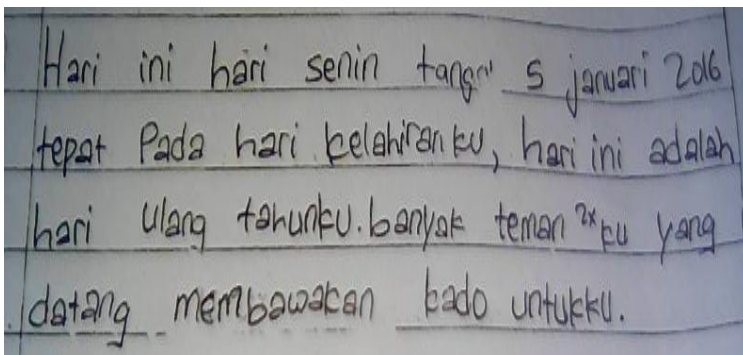 Hari ini hari senin tanggl 5 januari 2016
tepat Pada hari kelahiranku, hari ini adalah
hari ulang tahunku. banyak teman 2x ku yang
datang membawakan kado untukku.